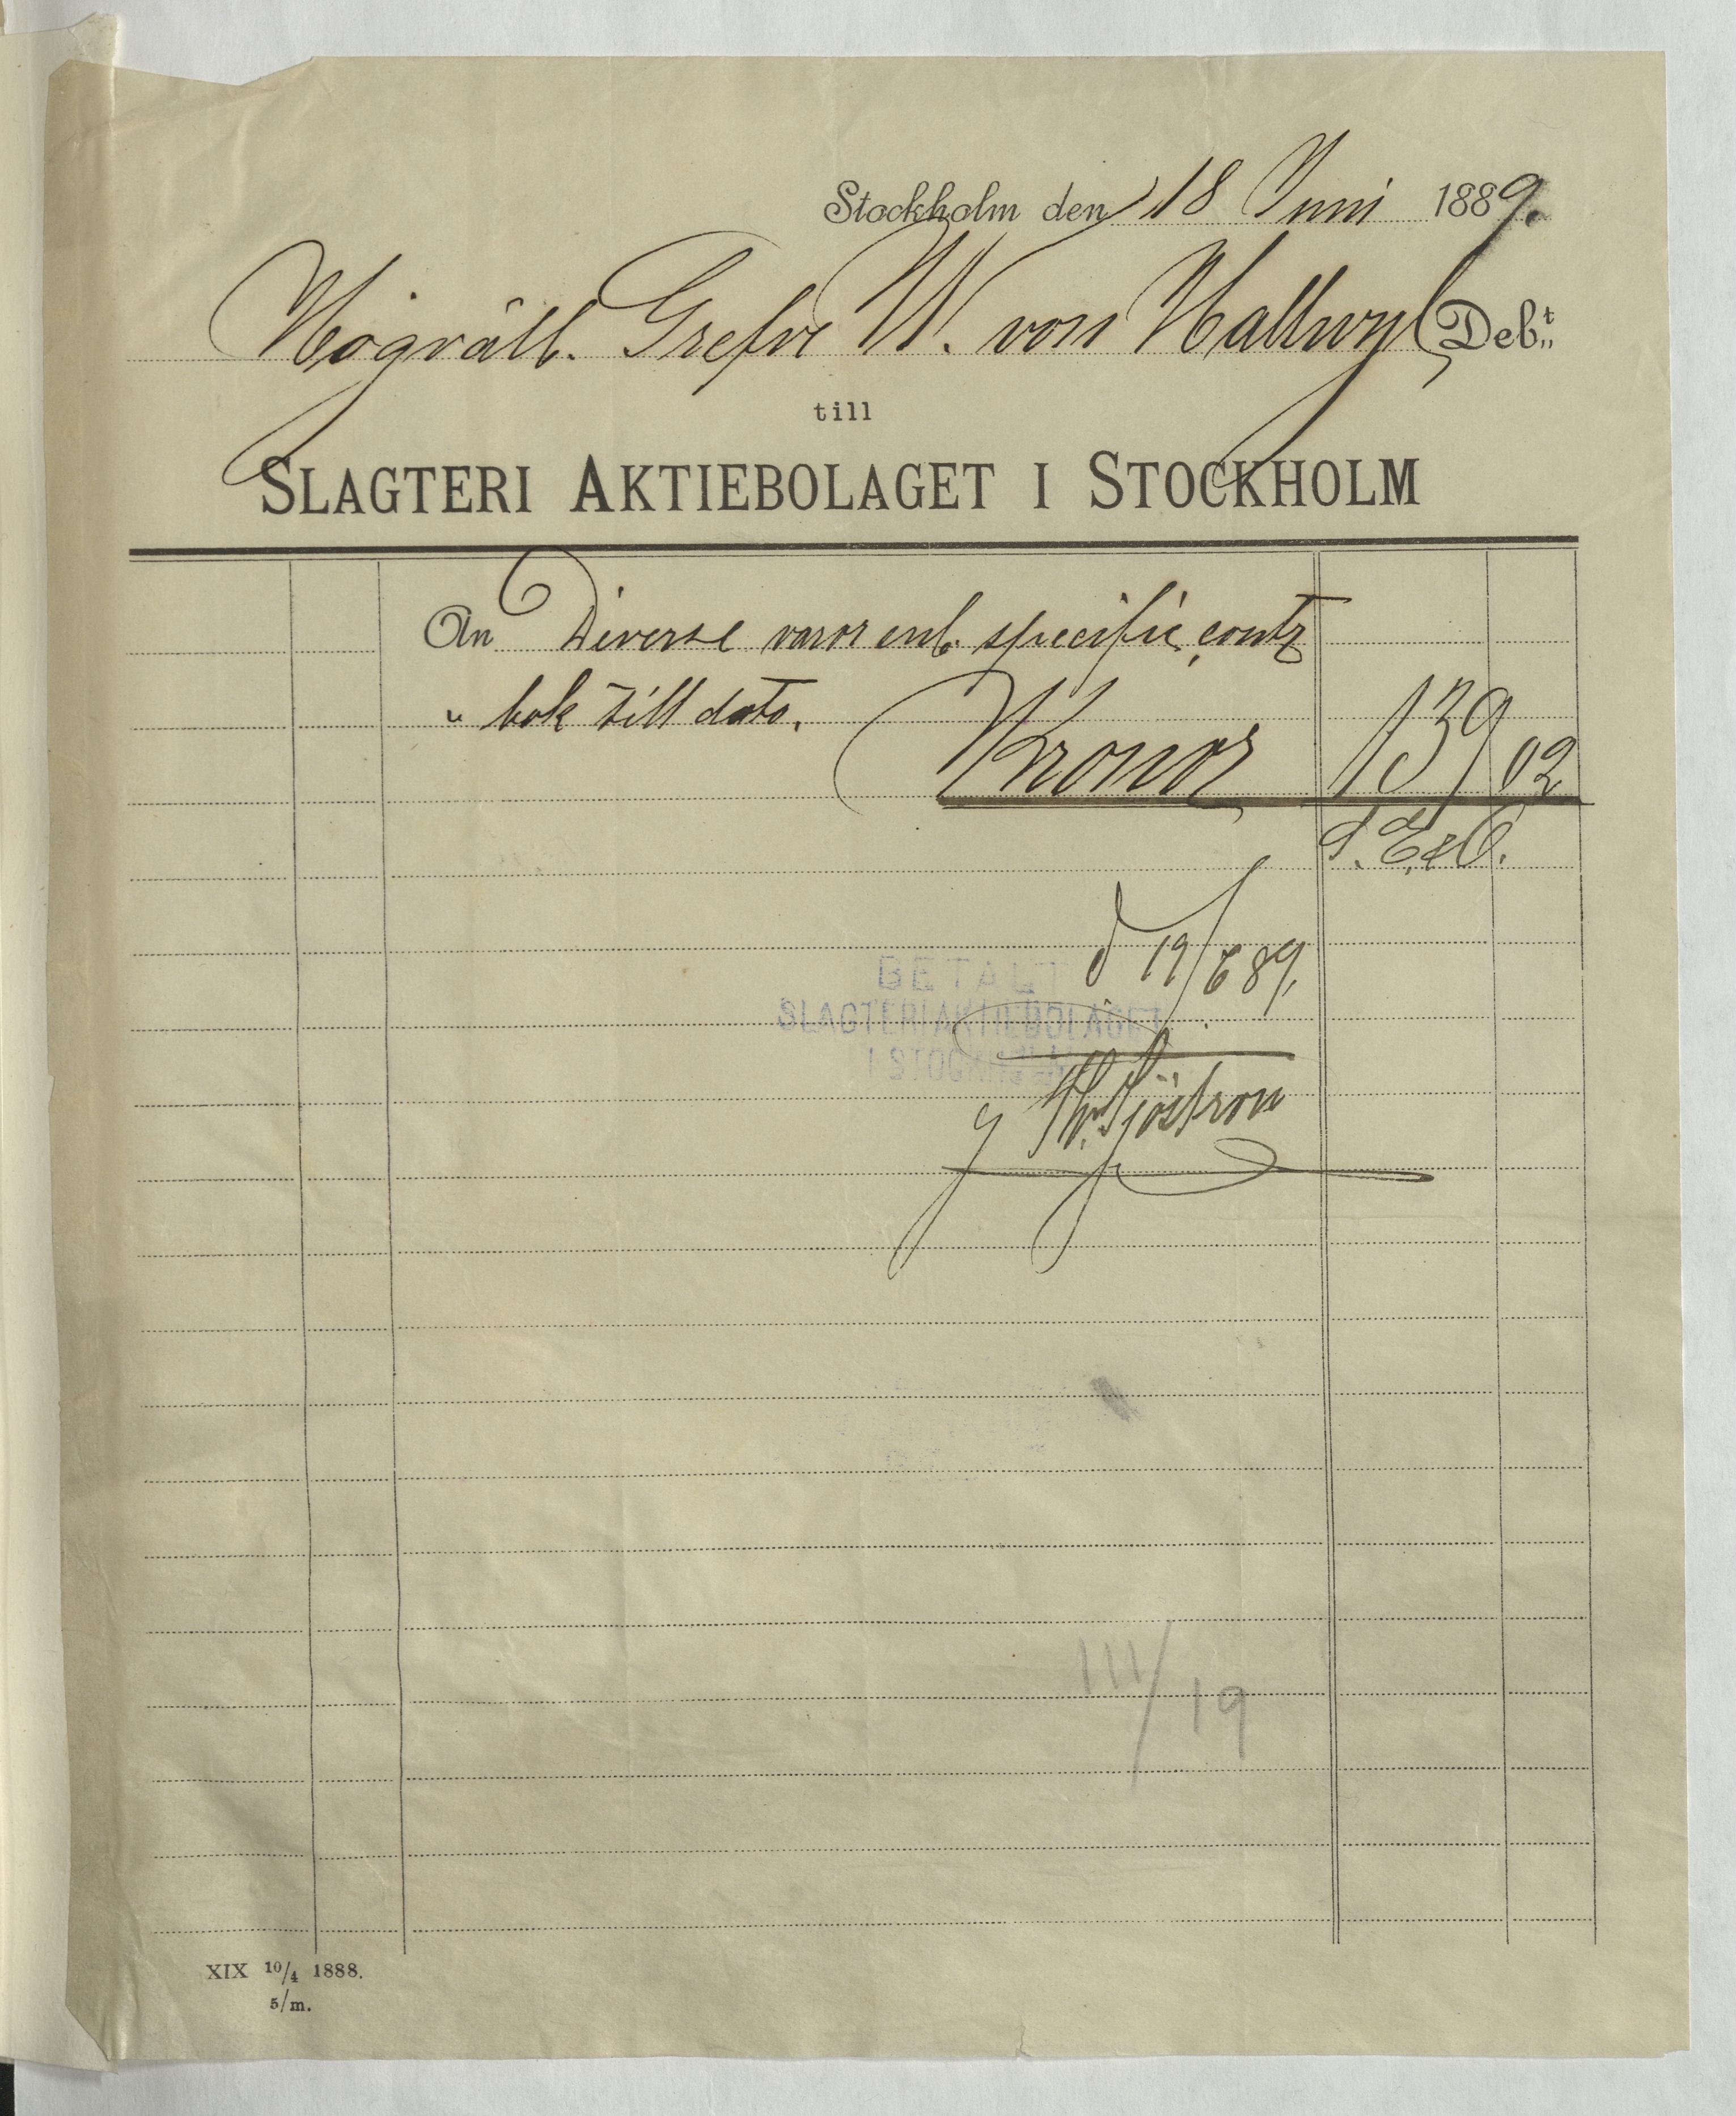 Stockholm den 18 Juni 1889.
Högvälb. Grefve W. von Hallwyl Deb:t
till
SLAGTERI AKTIEBOLAGET I STOCKHOLM
An Diverse varor enl. specific. contr
" bok till dato.
Kronor 139 02
S. E. & O.
d 19/6 89.
BETALT
SLAGTERIAKTIEBOLAGET
I STOCKHOLM
Sjöström
III/19
XIX 10/4 1888.
5/m.